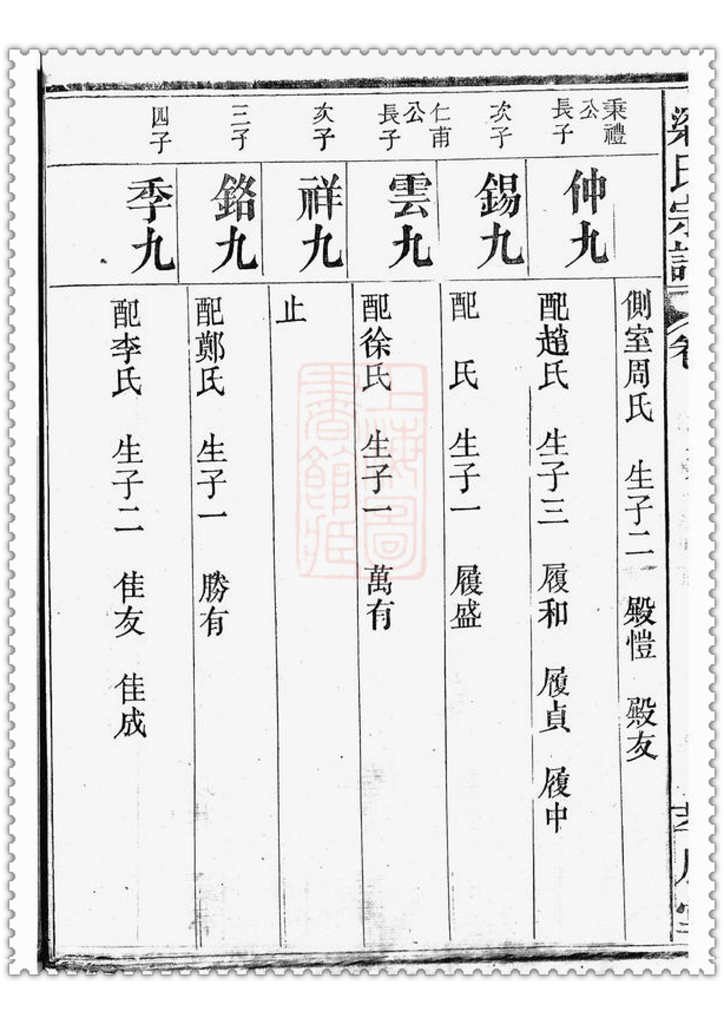 梁氏宗譜
卷
側室周氏 生子二 殿愷 殿友
秉禮公長子
仲九
配趙氏 生子三 履和 履貞 履中
次子
錫九
配 氏 生子一 履盛
仁甫公長子
雲九
配徐氏 生子一 萬有
次子
祥九
止
三子
銘九
配鄭氏 生子一 勝有
四子
季九
配李氏 生子二 佳友 佳成
上海圖書館藏